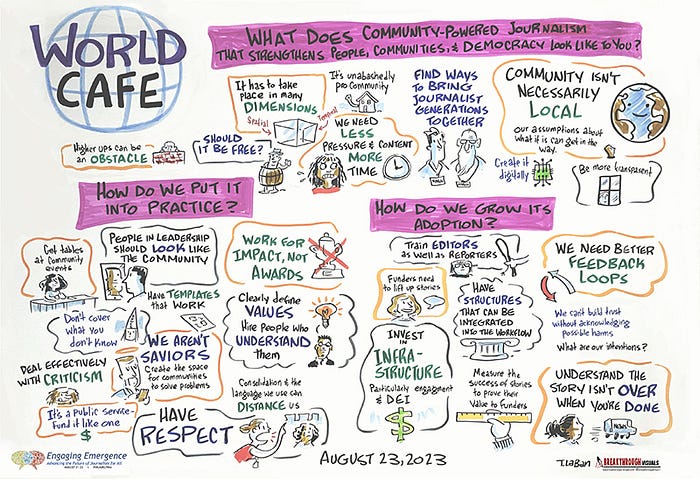 WORLD
CAFE
WHAT DOES COMMUNITY-POWERED JOURNALISM
THAT STRENGTHENS PEOPLE, COMMUNITIES, & DEMOCRACY LOOK LIKE TO YOU?
It has to take
place in many
DIMENSIONS
Spatial
Temporal
It's unabashedly
pro Community
FIND WAYS
TO BRING
JOURNALIST
GENERATIONS
TOGETHER
COMMUNITY ISN'T
NECESSARILY
LOCAL
our assumptions about
what it is can get in the
way.
Higher ups can be
an OBSTACLE
SHOULD
IT BE FREE?
WE NEED
LESS
PRESSURE & CONTENT
MORE
TIME
Create it
digitally
Be more transparent
HOW DO WE PUT IT
INTO PRACTICE?
Get tables
at Community
events
PEOPLE IN LEADERSHIP
SHOULD LOOK LIKE
THE COMMUNITY
WORK FOR
IMPACT, NOT
AWARDS
HAVE TEMPLATES
that WORK
Don't cover
what you
don't know
Clearly define
VALUES
Hire people who
UNDERSTAND
them
WE AREN'T
SAVIORS
Create the space
for communities
to solve problems
DEAL EFFECTIVELY
WITH CRITICISM
It's a Public Service-
Fund it like one
$
Consolidation & the
language we use can
DISTANCE US
HAVE
RESPECT
HOW DO WE GROW ITS
ADOPTION?
Train EDITORS
as well as REPORTERS
Funders need
to lift up stories
HAVE
STRUCTURES
THAT CAN BE
INTEGRATED
INTO THE WORKFLOW
WE NEED BETTER
FEEDBACK
LOOPS
We can't build trust
without acknowledging
possible harms
What are our intentions?
INVEST
IN
INFRA-
STRUCTURE
Particularly engagement
& DEI
$
Measure the
success of stories
to prove their
Value to Funders
UNDERSTAND THE
STORY ISN'T OVER
WHEN YOU'RE DONE
NEWS
Engaging Emergence
Advancing the Future of Journalism for All
AUGUST 23, 2023
T. LaBan
BREAKTHROUGH VISUALS